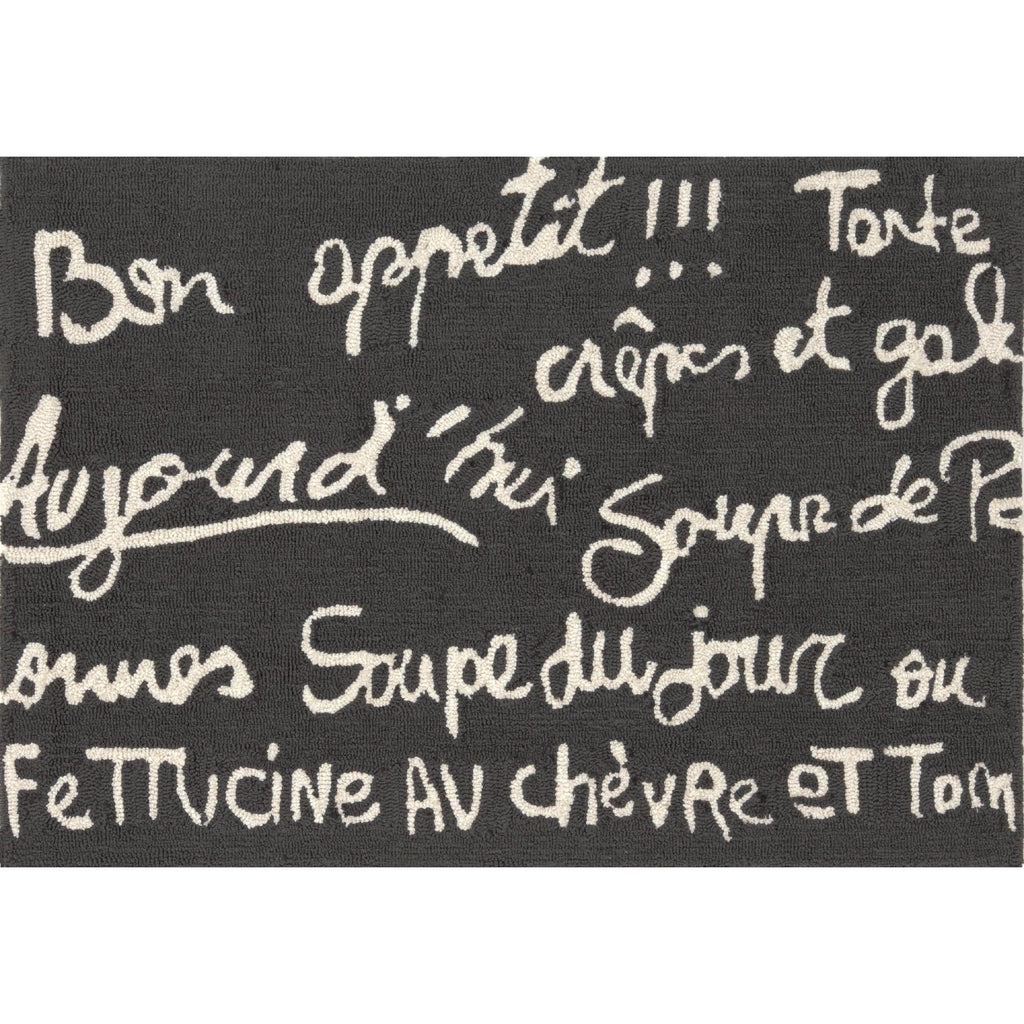 Bon appetit !!! Tarte
crêpes et gal
Aujourd'hui Soupe de Po
onnes Soupe du jour ou
FeTTUCiNe AU chèvRe eT Tom